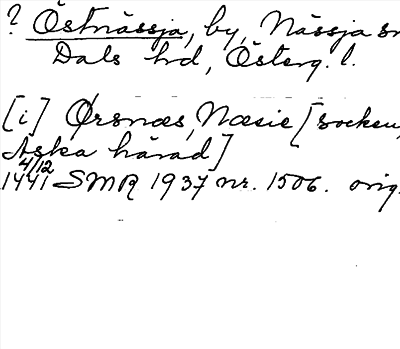 ? Östnässja, by, Nässja sn
Dals hd, Österg. l.
[i] Ørsnæs, Næsie [socken,
Aska härad]
4/12
1441 SMR 1937 nr. 1506. orig.